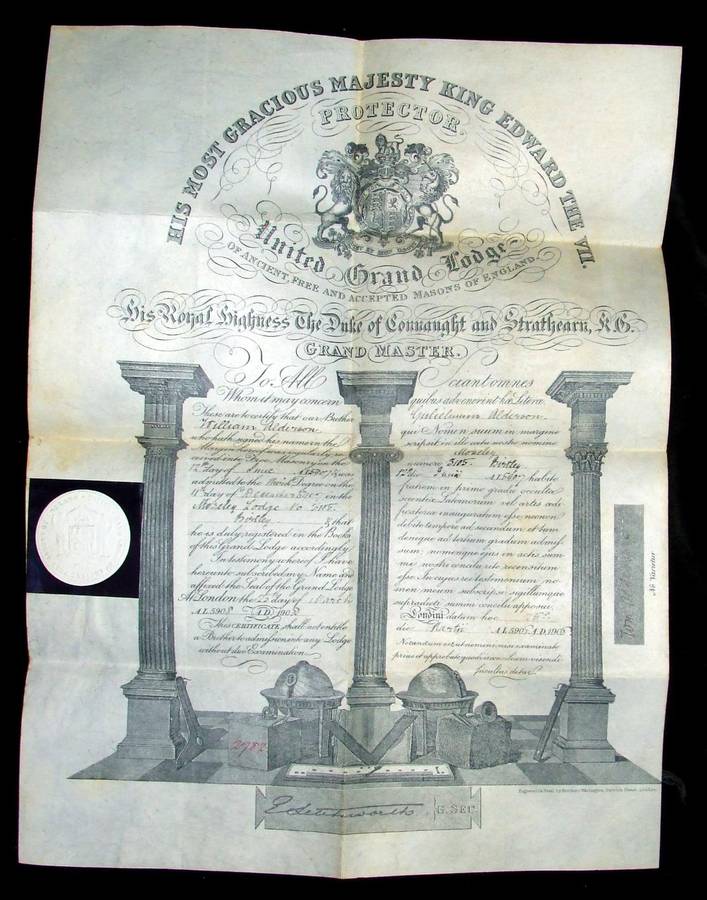 HIS MOST GRACIOUS MAJESTY KING EDWARD THE VII.
PROTECTOR
United Grand Lodge
OF ANCIENT, FREE AND ACCEPTED MASONS OF ENGLAND
His Royal Highness The Duke of Connaught and Strathearn, K.G.
GRAND MASTER.
To All
Whom it may concern
These are to certify that our Brother
William Alderson
who hath signed his name in the
Margin hereof was regularly re-
ceived into Free Masonry on the
12th day of June
admitted to the Third Degree on the
11th day of December in the
Moseley Lodge No 3105.
Heitley & that
he is duly registered in the Books
of this Grand Lodge accordingly.
In testimony whereof I have
hereunto subscribed my Name and
affixed the Seal of the Grand Lodge
At London the day of March
A.L. 5908 A.D. 1908
This CERTIFICATE shall not entitle
a Brother to admission to any Lodge
without due Examination.
Sciant omnes
quibus advenerint hæ Literæ
Gulielmum Alderson
qui Nomen suum in margine
scripsit in illo cœtu nostro nomine
Moseley
numero 3105.
die Junii A.L. 5907 habito
fratrem in primo gradu occultæ
scientiæ Latomorum vel artis ædi-
ficatoriæ inauguratum esse necnon
debito tempore ad secundum et tum
denique ad tertium gradum admis-
sum; nomenque ejus in actis sum-
mæ nostræ concilii rite recensitum
esse. In cujus rei testimonium no-
men meum subscripsi sigillumque
supradicti summi concilii apposui.
Londini datum hoc
die Martii A.L. 5908 A.D. 1908
Notandum est ut nemini nisi examinato
prius et approbato
facultas detur.
Ne Varietur
2782
E Letchworth G. SEC.